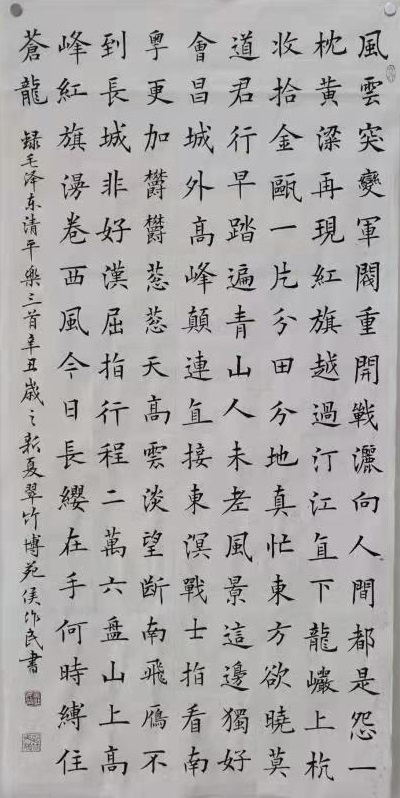 風雲突變軍閥重開戰灑向人間都是怨一
枕黃粱再現紅旗越過汀江直下龍巖上杭
收拾金甌一片分田分地真忙東方欲曉莫
道君行早踏遍青山人未老風景這邊獨好
會昌城外高峰顛連直接東溟戰士指看南
粵更加欝欝蔥蔥天高雲淡望斷南飛雁不
到長城非好漢屈指行程二萬六盤山上高
峰紅旗漫卷西風今日長纓在手何時縛住
蒼龍
録毛泽东清平樂三首辛丑歲之新夏翠竹博苑侯作民書